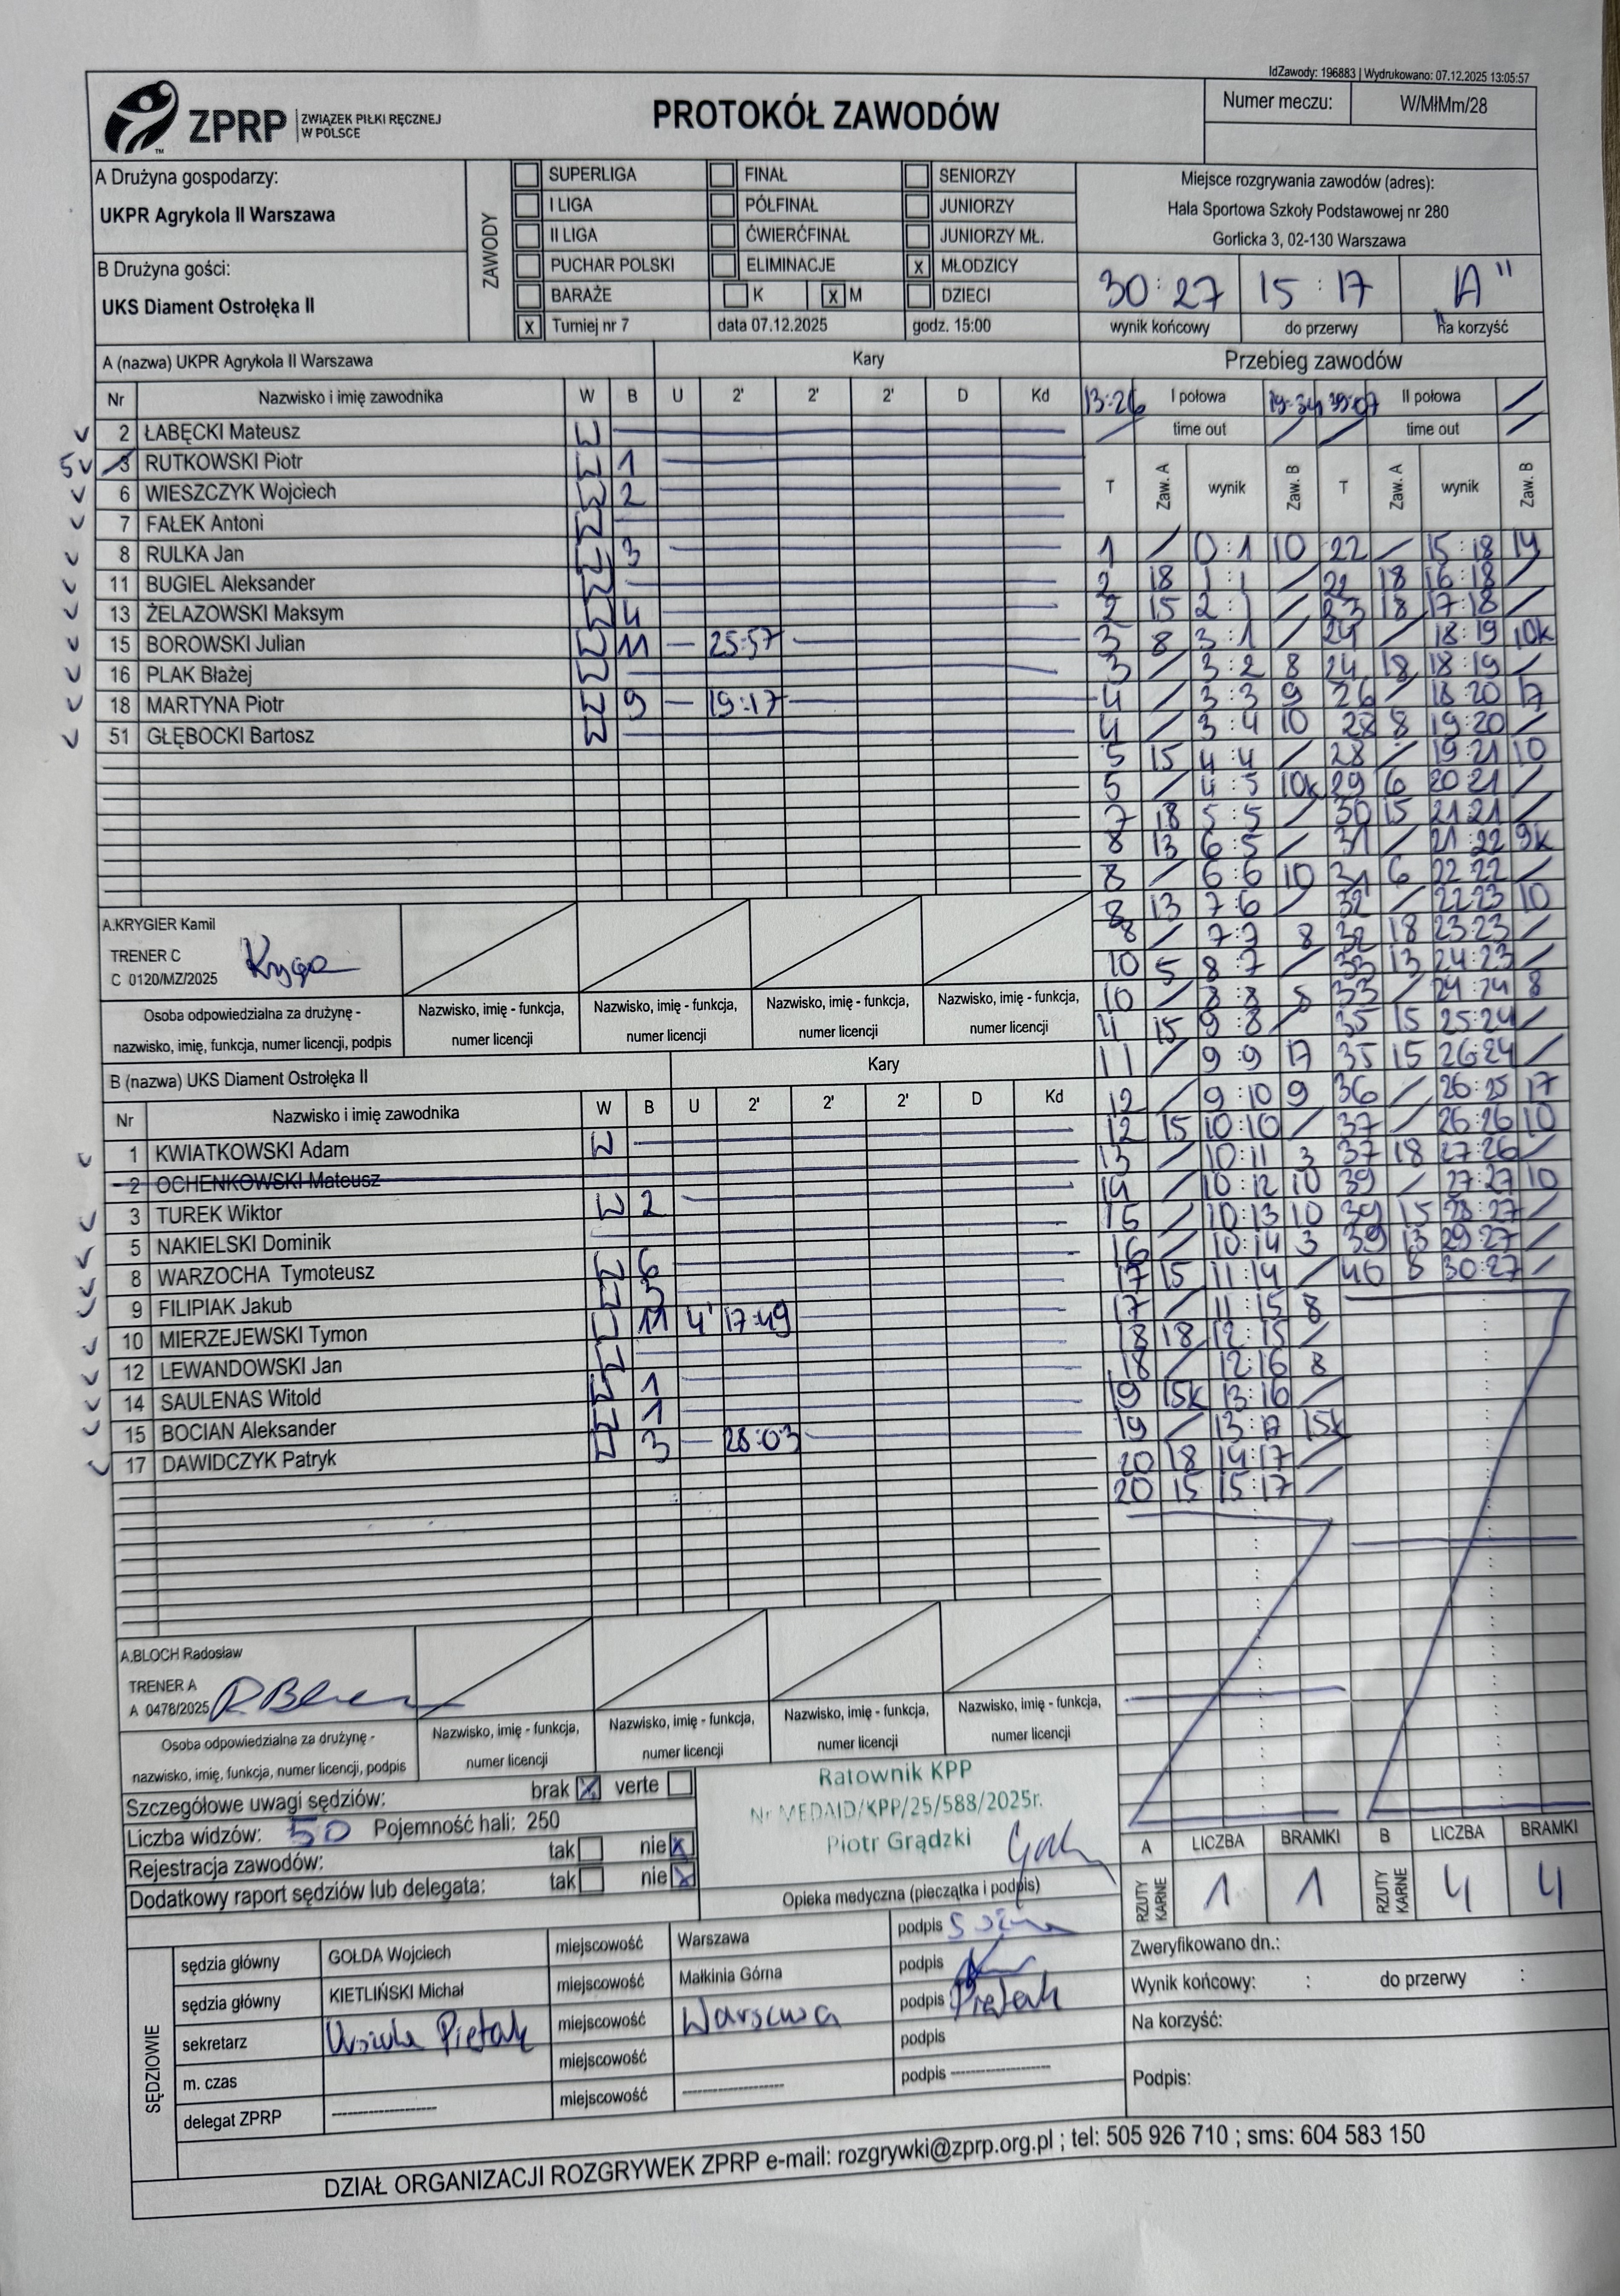 IdZawody: 196883 | Wydrukowano: 07.12.2025 13:05:57
ZPRP ZWIĄZEK PIŁKI RĘCZNEJ W POLSCE
PROTOKÓŁ ZAWODÓW
Numer meczu: W/MłMm/28
A Drużyna gospodarzy:
UKPR Agrykola II Warszawa
B Drużyna gości:
UKS Diament Ostrołęka II
ZAWODY
SUPERLIGA FINAŁ SENIORZY
I LIGA PÓŁFINAŁ JUNIORZY
II LIGA ĆWIERĆFINAŁ JUNIORZY MŁ.
PUCHAR POLSKI ELIMINACJE x MŁODZICY
BARAŻE K x M DZIECI
x Turniej nr 7 data 07.12.2025 godz. 15:00
Miejsce rozgrywania zawodów (adres):
Hala Sportowa Szkoły Podstawowej nr 280
Gorlicka 3, 02-130 Warszawa
30:27 15:17 „A"
wynik końcowy do przerwy na korzyść
A (nazwa) UKPR Agrykola II Warszawa Kary
Nr Nazwisko i imię zawodnika W B U 2' 2' 2' D Kd
2 ŁABĘCKI Mateusz W
5 3 RUTKOWSKI Piotr W 1
6 WIESZCZYK Wojciech W 2
7 FAŁEK Antoni W
8 RULKA Jan W 3
11 BUGIEL Aleksander W
13 ŻELAZOWSKI Maksym W 4
15 BOROWSKI Julian W 11 25:57
16 PLAK Błażej W
18 MARTYNA Piotr W 9 19:17
51 GŁĘBOCKI Bartosz W
A.KRYGIER Kamil
TRENER C
C 0120/MZ/2025
Osoba odpowiedzialna za drużynę -
nazwisko, imię, funkcja, numer licencji, podpis
Nazwisko, imię - funkcja, numer licencji
Nazwisko, imię - funkcja, numer licencji
Nazwisko, imię - funkcja, numer licencji
Nazwisko, imię - funkcja, numer licencji
B (nazwa) UKS Diament Ostrołęka II Kary
Nr Nazwisko i imię zawodnika W B U 2' 2' 2' D Kd
1 KWIATKOWSKI Adam W
2 OCHENKOWSKI Mateusz
3 TUREK Wiktor W 2
5 NAKIELSKI Dominik
8 WARZOCHA Tymoteusz W 6
9 FILIPIAK Jakub W 3
10 MIERZEJEWSKI Tymon W 11 4' 17:49
12 LEWANDOWSKI Jan W
14 SAULENAS Witold W 1
15 BOCIAN Aleksander W 1
17 DAWIDCZYK Patryk W 3 28:03
A.BLOCH Radosław
TRENER A
A 0478/2025
Osoba odpowiedzialna za drużynę -
nazwisko, imię, funkcja, numer licencji, podpis
Nazwisko, imię - funkcja, numer licencji
Nazwisko, imię - funkcja, numer licencji
Nazwisko, imię - funkcja, numer licencji
Nazwisko, imię - funkcja, numer licencji
Przebieg zawodów
13:26 I połowa 19:34 39:07 II połowa /
/ time out / / time out /
T Zaw. A wynik Zaw. B T Zaw. A wynik Zaw. B
1 / 0:1 10 22 / 15:18 14
2 18 1:1 / 22 18 16:18 /
2 15 2:1 / 23 18 17:18 /
3 8 3:1 / 24 / 18:19 10k
3 / 3:2 8 24 18 18:19 /
4 / 3:3 9 26 / 18:20 17
4 / 3:4 10 28 8 19:20 /
5 15 4:4 / 28 / 19:21 10
5 / 4:5 10k 29 6 20:21 /
7 18 5:5 / 30 15 21:21 /
8 13 6:5 / 31 / 21:22 9k
8 / 6:6 10 31 6 22:22 /
8 13 7:6 / 32 / 22:23 10
8 / 7:7 8 32 18 23:23 /
10 5 8:7 / 33 13 24:23 /
10 / 8:8 8 33 / 24:24 8
11 15 9:8 / 35 15 25:24 /
11 / 9:9 17 35 15 26:24 /
12 / 9:10 9 36 / 26:25 17
12 15 10:10 / 37 / 26:26 10
13 / 10:11 3 37 18 27:26 /
14 / 10:12 10 39 / 27:27 10
15 / 10:13 10 39 15 28:27 /
16 / 10:14 3 39 13 29:27 /
17 15 11:14 / 40 8 30:27 /
17 / 11:15 8
18 18 12:15 /
18 / 12:16 8
19 15k 13:16 /
19 / 13:17 15k
20 18 14:17 /
20 15 15:17 /
Szczegółowe uwagi sędziów: brak x verte
Liczba widzów: 50 Pojemność hali: 250
Rejestracja zawodów: tak nie x
Dodatkowy raport sędziów lub delegata: tak nie x
Ratownik KPP
Nr MEDAID/KPP/25/588/2025r.
Piotr Grądzki
Opieka medyczna (pieczątka i podpis)
A LICZBA BRAMKI B LICZBA BRAMKI
RZUTY KARNE 1 1 RZUTY KARNE 4 4
SĘDZIOWIE
sędzia główny GOŁDA Wojciech miejscowość Warszawa podpis
sędzia główny KIETLIŃSKI Michał miejscowość Małkinia Górna podpis
sekretarz Urszula Piętak miejscowość Warszawa podpis Piętak
m. czas miejscowość podpis
delegat ZPRP ---------- miejscowość ---------- podpis ----------
Zweryfikowano dn.:
Wynik końcowy: : do przerwy :
Na korzyść:
Podpis:
DZIAŁ ORGANIZACJI ROZGRYWEK ZPRP e-mail: rozgrywki@zprp.org.pl ; tel: 505 926 710 ; sms: 604 583 150